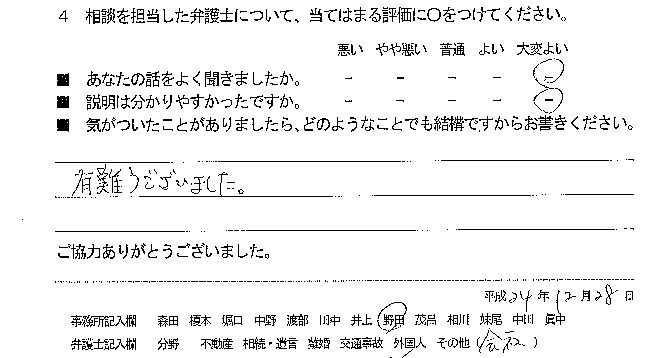 4 相談を担当した弁護士について、当てはまる評価に○をつけてください。
悪い やや悪い 普通 よい 大変よい
■ あなたの話をよく聞きましたか。 － － － － －
■ 説明は分かりやすかったですか。 － － － － －
■ 気がついたことがありましたら、どのようなことでも結構ですからお書きください。
有難うございました。
ご協力ありがとうございました。
平成24年12月28日
事務所記入欄 森田 榎本 堀口 中野 渡部 田中 井上 野田 茂呂 相川 妹尾 中田 眞中
弁護士記入欄 分野 不動産 相続・遺言 離婚 交通事故 外国人 その他（会社）